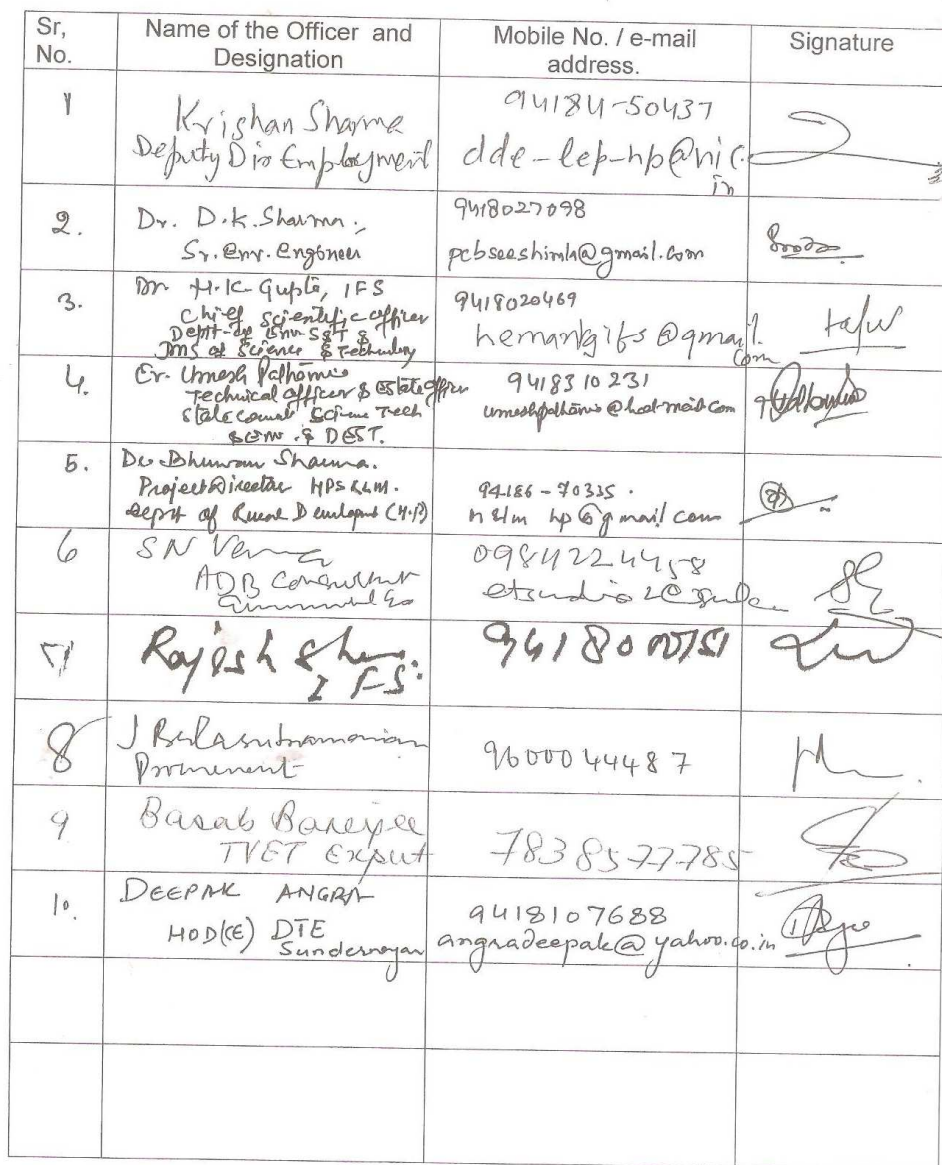 Sr, No.
Name of the Officer and Designation
Mobile No. / e-mail address.
Signature
1
Krishan Sharma
Deputy Dir Employment
94184-50437
dde-lep-hp@nic.
in
2.
Dr. D.K. Sharma,
Sr. Env. Engineer
9418027098
pcbseeshimla@gmail.com
3.
Dr. H.K. Gupta, IFS
Chief Scientific Officer
Deptt of Env S&T &
of Science & Technology
9418020469
@gmail.
com
4.
Er. Umesh Pathania
Technical Officer & Estate Officer
State Science Tech
& DEST.
9418310231
umeshpathania@hotmail.com
5.
Bhuwan Sharma.
Project Director HPSRLM.
Deptt of Rural (H.P)
94186-70335.
nrlm hp@gmail com
6
SN Verma
ADB Consultant
7
Rajesh
IFS.
8
J Balasubramanian
9600044487
9
Basab Banerjee
TVET Expert
7838577785
10.
DEEPAK ANGRA
HOD(CE) DTE
Sundernagar
9418107688
angradeepak@yahoo.co.in